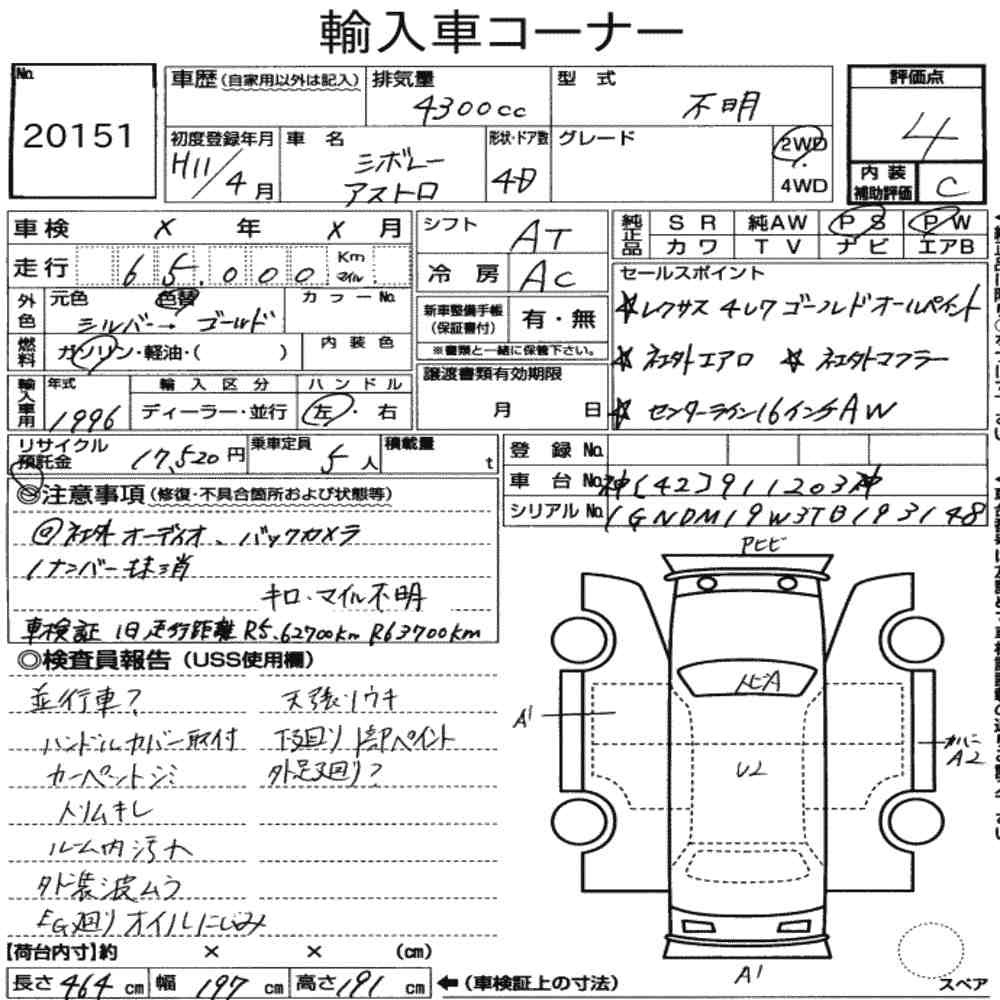 輸入車コーナー
No. 20151
車歴 (自家用以外は記入)
排気量 4300cc
型式 不明
評価点 4
初度登録年月 H11/4月
車名 シボレー アストロ
形状・ドア数 4D
グレード
2WD・4WD
内装補助評価 C
車検 X 年 X 月
シフト AT
純正品 SR 純AW PS PW
カワ TV ナビ エアB
走行 65,000 Km マイル
冷房 AC
セールスポイント
☆レクサス 4L7 ゴールドオールペイント
☆社外エアロ ☆社外マフラー
☆センターライン16インチAW
外色 元色 色替 カラーNo.
シルバー→ゴールド
新車整備手帳(保証書付) 有・無
※書類と一緒に保管下さい。
燃料 ガソリン・軽油・( )
内装色
譲渡書類有効期限
月 日
輸入車用 年式 1996
輸入区分 ディーラー・並行
ハンドル 左・右
リサイクル預託金 17,520円
乗車定員 5人
積載量 t
登録No.
車台No. 神[42]911203神
シリアルNo. 1GNDM19W3TB193148
◎注意事項 (修復・不具合箇所および状態等)
社外オーディオ、バックカメラ
1ナンバー抹消
キロ・マイル不明
車検証 旧走行距離 R5.62700km R6 3700km
◎検査員報告 (USS使用欄)
並行車? 天張りウキ
ハンドルカバー取付 下回り1部ペイント
カーペットシミ 外足廻り?
トリムキレ
ルーム内汚れ
外装波ムラ
EG廻りオイルにじみ
Pヒビ
トビA
A1
U2
カバーA2
A1
スペア
【荷台内寸】約 × × (cm)
長さ 464 cm 幅 197 cm 高さ 191 cm ←(車検証上の寸法)